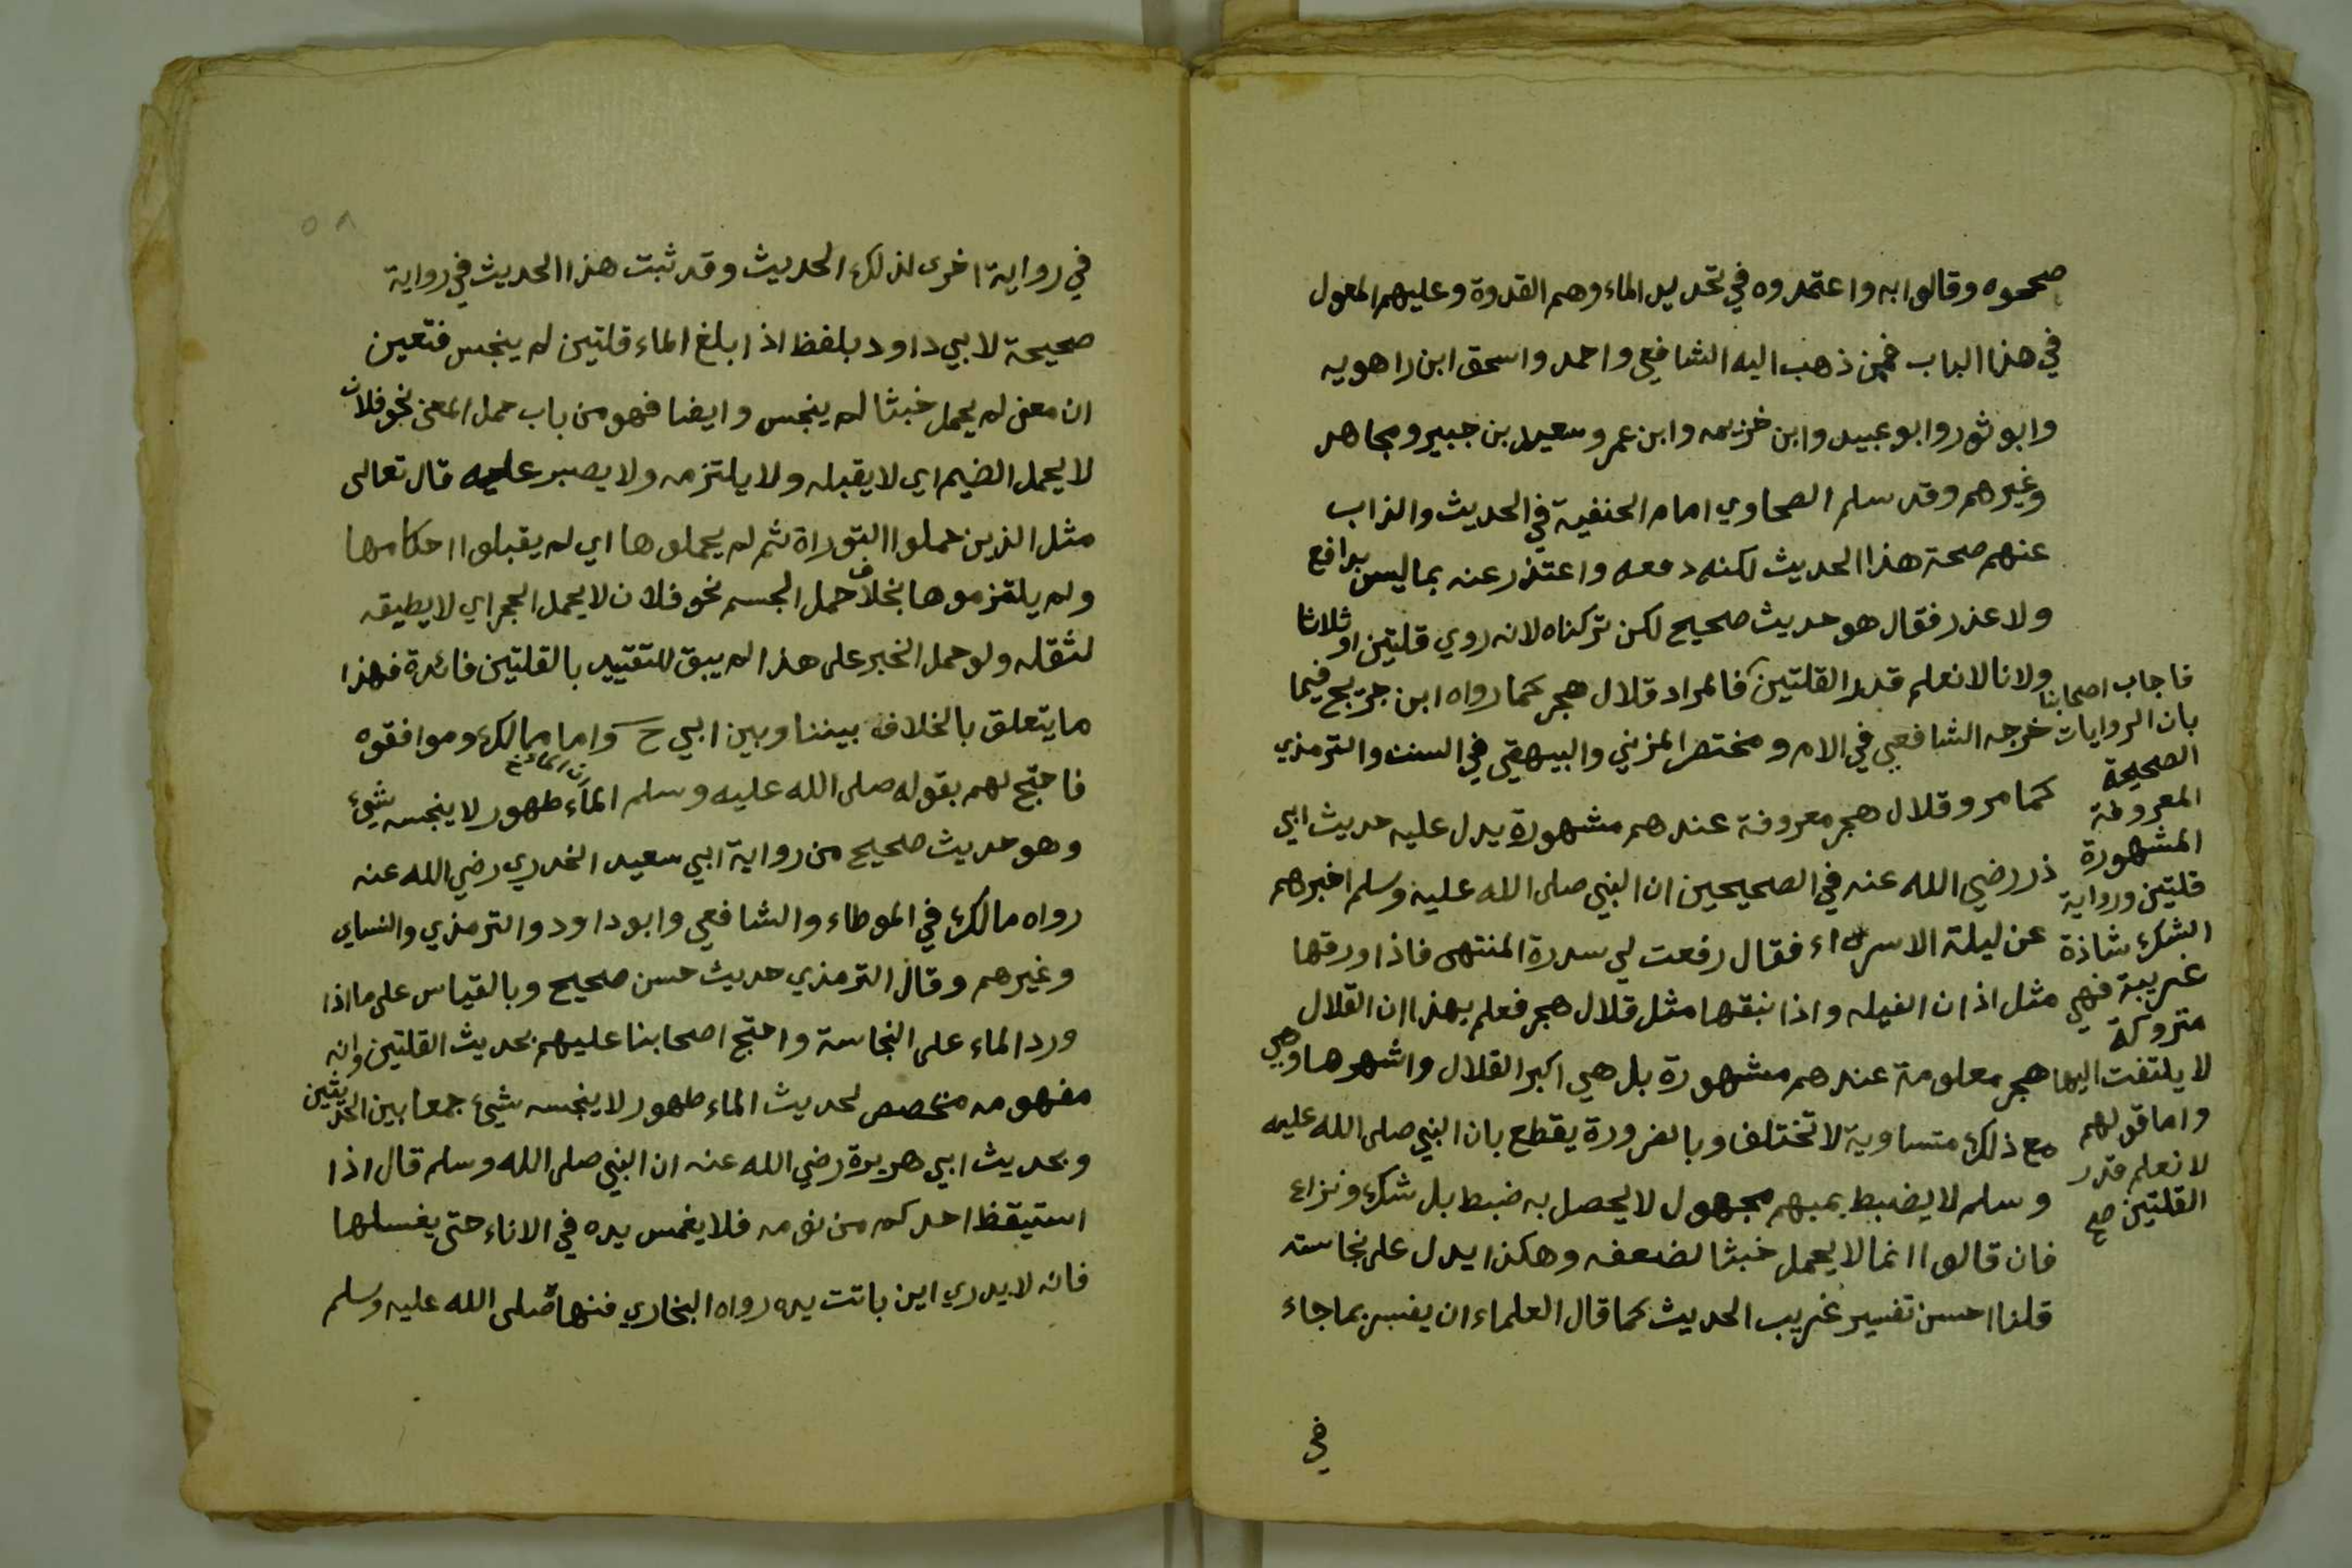 صححوه وقالوا به واعتمدوه في تحديد الماء وهم القدوة وعليهم المعول
في هذا الباب فممن ذهب اليه الشافعي واحمد واسحق ابن راهويه
وابو ثور وابو عبيد وابن خزيمه وابن عمر وسعيد بن جبير ومجاهد
وغيرهم وقد سلم الصحاوي امام الحنفية في الحديث والذاب
عنهم صحة هذا الحديث لكنه دفعه واعتذر عنه بما ليس بدافع
ولا عذر فقال هو حديث صحيح لكن تركناه لانه روي قلتين او ثلاثا
ولانا لا نعلم قدر القلتين فالمراد قلال هجر كما رواه ابن جريج فيما
خرجه الشافعي في الام ومختصر المزني والبيهقي في السنن والترمذي
كما مر وقلال هجر معروفة عندهم مشهورة يدل عليه حديث ابي
ذر رضي الله عنه في الصحيحين ان النبي صلى الله عليه وسلم اخبرهم
عن ليلة الاسراء فقال رفعت لي سدرة المنتهى فاذا ورقها
مثل اذان الفيله واذا نبقها مثل قلال هجر فعلم بهذا ان القلال
هجر معلومة عندهم مشهورة بل هي اكبر القلال واشهرها وهي
مع ذلك متساوية لا تختلف وبالضرورة يقطع بان النبي صلى الله عليه
وسلم لا يضبط بمبهم مجهول لا يحصل به ضبط بل شك ونزاع
فان قالوا انما لا يحمل خبثا لضعفه وهكذا يدل على نجاسته
قلنا احسن تفسير غريب الحديث كما قال العلماء ان يفسر بما جاء
في
فاجاب اصحابنا
بان الروايات
الصحيحة
المعروفة
المشهورة
قلتين ورواية
الشك شاذة
غريبة فهي
متروكة
لا يلتفت اليها
واما قولهم
لا نعلم قدر
القلتين صح
٥٨
في رواية اخرى لذلك الحديث وقد ثبت هذا الحديث في رواية
صحيحة لابي داود بلفظ اذا بلغ الماء قلتين لم ينجس فتعين
ان معنى لم يحمل خبثا لم ينجس وايضا فهو من باب حمل المعنى نحو فلان
لا يحمل الضيم اي لا يقبله ولا يلتزمه ولا يصبر عليه قال تعالى
مثل الذين حملوا التوراة ثم لم يحملوها اي لم يقبلوا احكامها
ولم يلتزموها بخلاف حمل الجسم نحو فلان لا يحمل الحجر اي لا يطيقه
لثقله ولو حمل الخبر على هذا لم يبق للتقييد بالقلتين فائدة فهذا
ما يتعلق بالخلاف بيننا وبين ابي ح واما مالك وموافقوه
فاحتج لهم بقوله صلى الله عليه وسلم الماء طهور لا ينجسه شيئ
ان الماء خ
وهو حديث صحيح من رواية ابي سعيد الخدري رضي الله عنه
رواه مالك في الموطاء والشافعي وابو داود والترمذي والنساي
وغيرهم وقال الترمذي حديث حسن صحيح وبالقياس على ما اذا
ورد الماء على النجاسة واحتج اصحابنا عليهم بحديث القلتين وانه
مفهومه مخصص لحديث الماء طهور لا ينجسه شيئ جمعا بين الحديثين
وبحديث ابي هريرة رضي الله عنه ان النبي صلى الله وسلم قال اذا
استيقظ احدكم من نومه فلا يغمس يده في الاناء حتى يغسلها
فانه لا يدري اين باتت يده رواه البخاري فنهاه صلى الله عليه وسلم